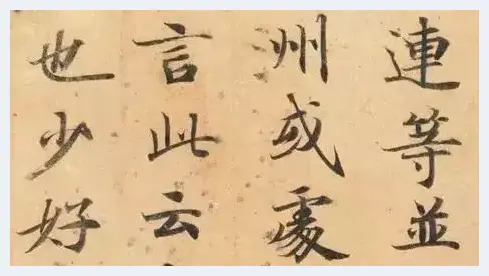 連等並
州或處
言此云
也少好